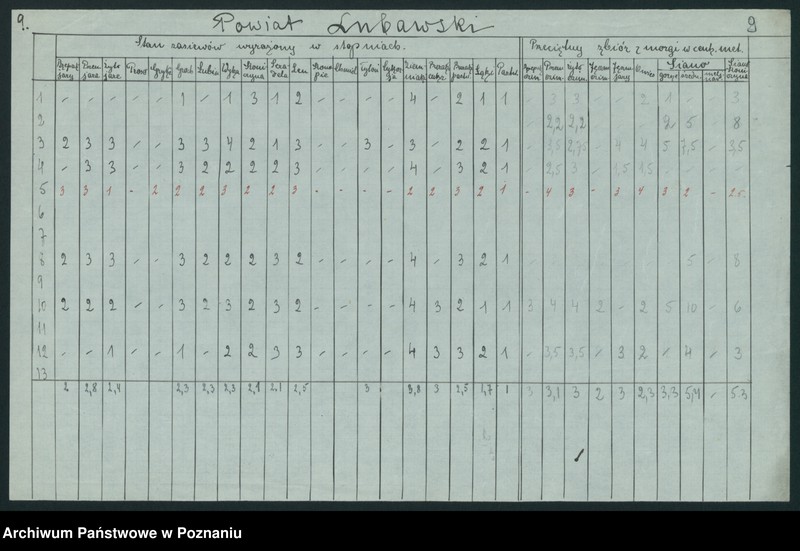 9. Powiat Lubawski 9
Stan zasiewów wyrażony w stopniach. Przeciętny zbiór z morgi w cent. met.
Proso Gryka Łubin Wyka Len Chmiel Tytoń Łąki Siano
1 - - - - - 1 - 1 3 1 2 4 - 2 1 1 - 3 3 - - 2 1 - 3
2 - 2,2 2,2 2 5 - 8
3 2 3 3 - - 3 3 4 2 1 3 - - 3 - 3 - 2 2 1 - 3,5 2,75 - 4 4 5 7,5 - 3,5
4 - 3 3 - - 3 2 2 2 2 3 - - - - 4 - 3 2 1 - 2,5 3 - 1,5 1,5
5 3 3 1 - 2 2 2 3 2 2 3 - - - - 2 2 3 2 1 - 4 3 - 3 4 3 2 - 2.5
6
7
8 2 3 3 - - 3 2 2 2 3 2 - - - - 4 - 3 2 1 5 8
9
10 2 2 2 - - 3 2 3 2 3 2 - - - - 4 3 2 1 1 3 4 4 2 - 2 5 10 - 6
11
12 - - 1 - - 1 - 2 2 3 3 - - - - 4 3 3 2 1 - 3,5 3,5 - 3 2 - 4 - 3
13
2 2,8 2,4 2,3 2,3 2,3 2,1 2,1 2,5 3 3,8 3 2,5 1,7 1 3 3,1 3 2 3 2,3 3,3 5,4 - 5.3
Archiwum Państwowe w Poznaniu